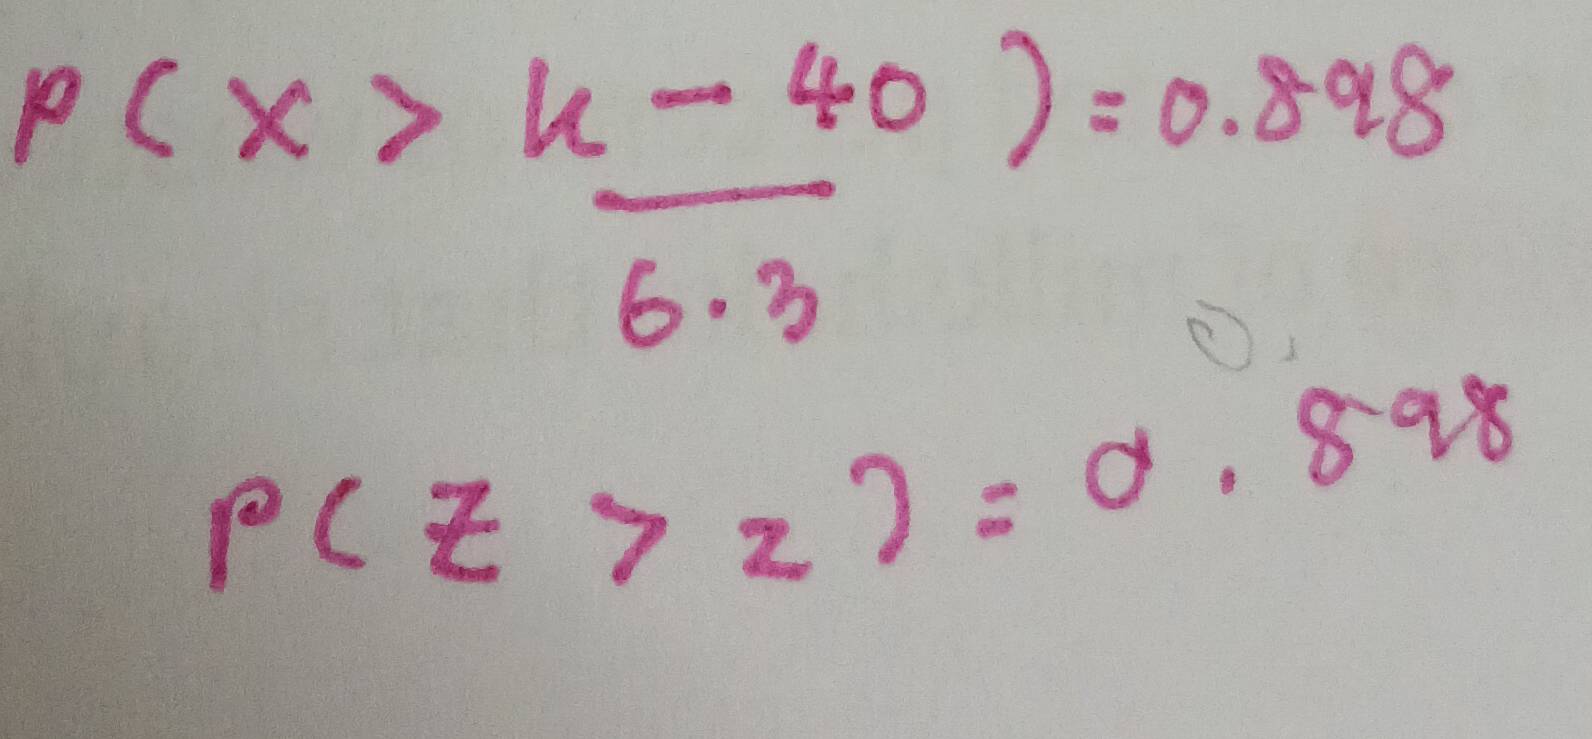 P(X > k - 40) = 0.898
6.3
0.
P(Z > z) = 0.898